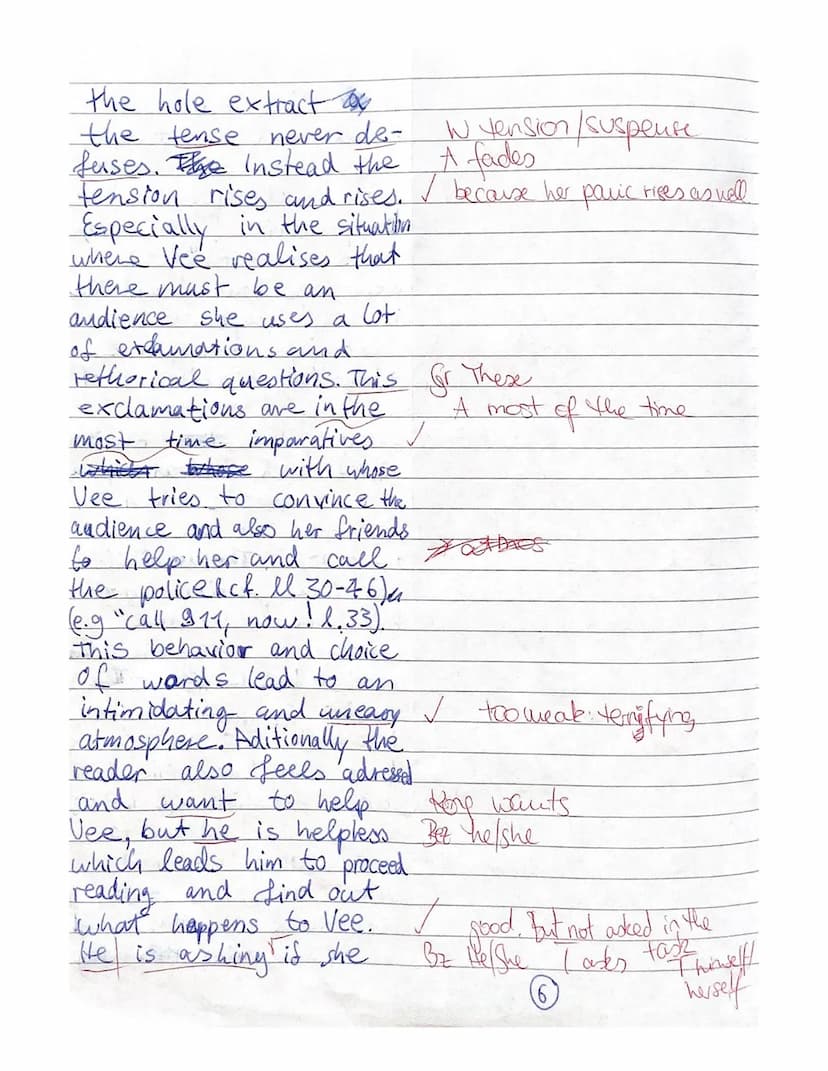 the hole extract
the tense never de- W tension/suspense
fuses. The Instead the A fades
tension rises and rises. ✓ because her panic rises as well
Especially in the situation
where Vee realises that
there must be an
audience she uses a lot
of exclamations and
rethorical questions. This Gr These
exclamations are in the A most of the time
most time imparatives ✓
which whose with whose
Vee tries to convince the
audience and also her friends
to help her and call
the police (cf. ll 30-46)
(e.g "call 911, now! l.33).
This behavior and choice
of words lead to an
intimidating and uneasy ✓ too weak: terrifying
atmosphere. Aditionally the
reader also feels adressed
and want to help Kong wants
Vee, but he is helpless Bez he/she
which leads him to proceed
reading and find out
what happens to Vee. ✓ good. But not asked in the
He is asking if she Bz He/She T asks task
himself/
herself
6